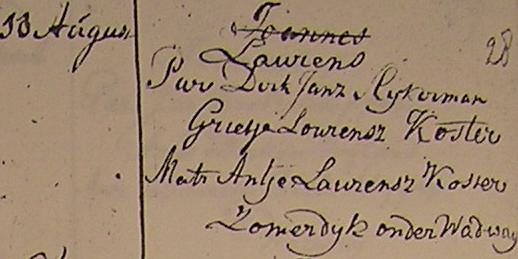 13 August
Joannes
Laurens
28
Par Dirk Janz Slykerman
Grietje Lourensz Koster
Matr Antje Laurensz Koster
Zomerdyk onder Wadway